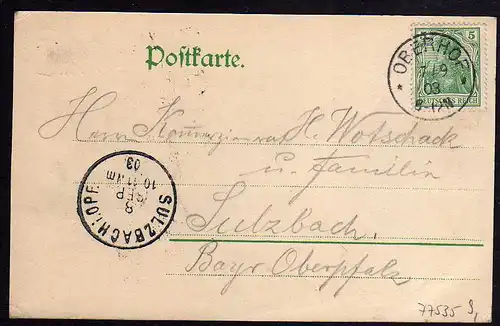 Postkarte.
5
DEUTSCHES REICH
* OBERHOF *
7/9
03
Herrn Kommerzienrat H. Wotschack
u. Familie
Sulzbach
Bayr Oberpfalz
SULZBACH i. OPF.
8
SEP
03
77535